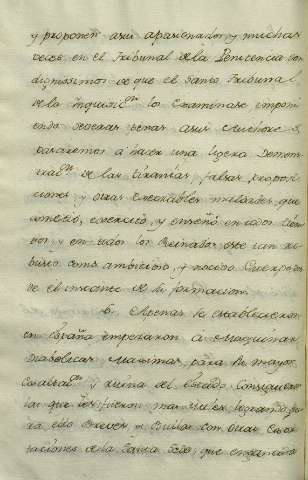 y proponen asus apasionados y muchas
veces en el Tribunal de la Penitencia son
dignissimos de que el Santo Tribunal
de la Inquisicⁿ los examinase imponi
endo severas penas asus
pasaremos a hacer una ligera Demos
tracⁿ de las tiranias, falsas proposi
ciones y otras execrables maldades que
cometió, exercitó, y enseñó en todos tiem
pos y en todos los Reinados este tan
como ambicioso, y nocivo Cuerpo des
de el instante de su formacion.
6. Apenas se establecieron
en España empezaron a maquinar
Diabolicas Maximas, para la mayor
y ruina del Estado,
las que les fueron mas utiles logrando pa
ra ello Breves, y Bullas con otras Exor
taciones de la Santa Sede, que